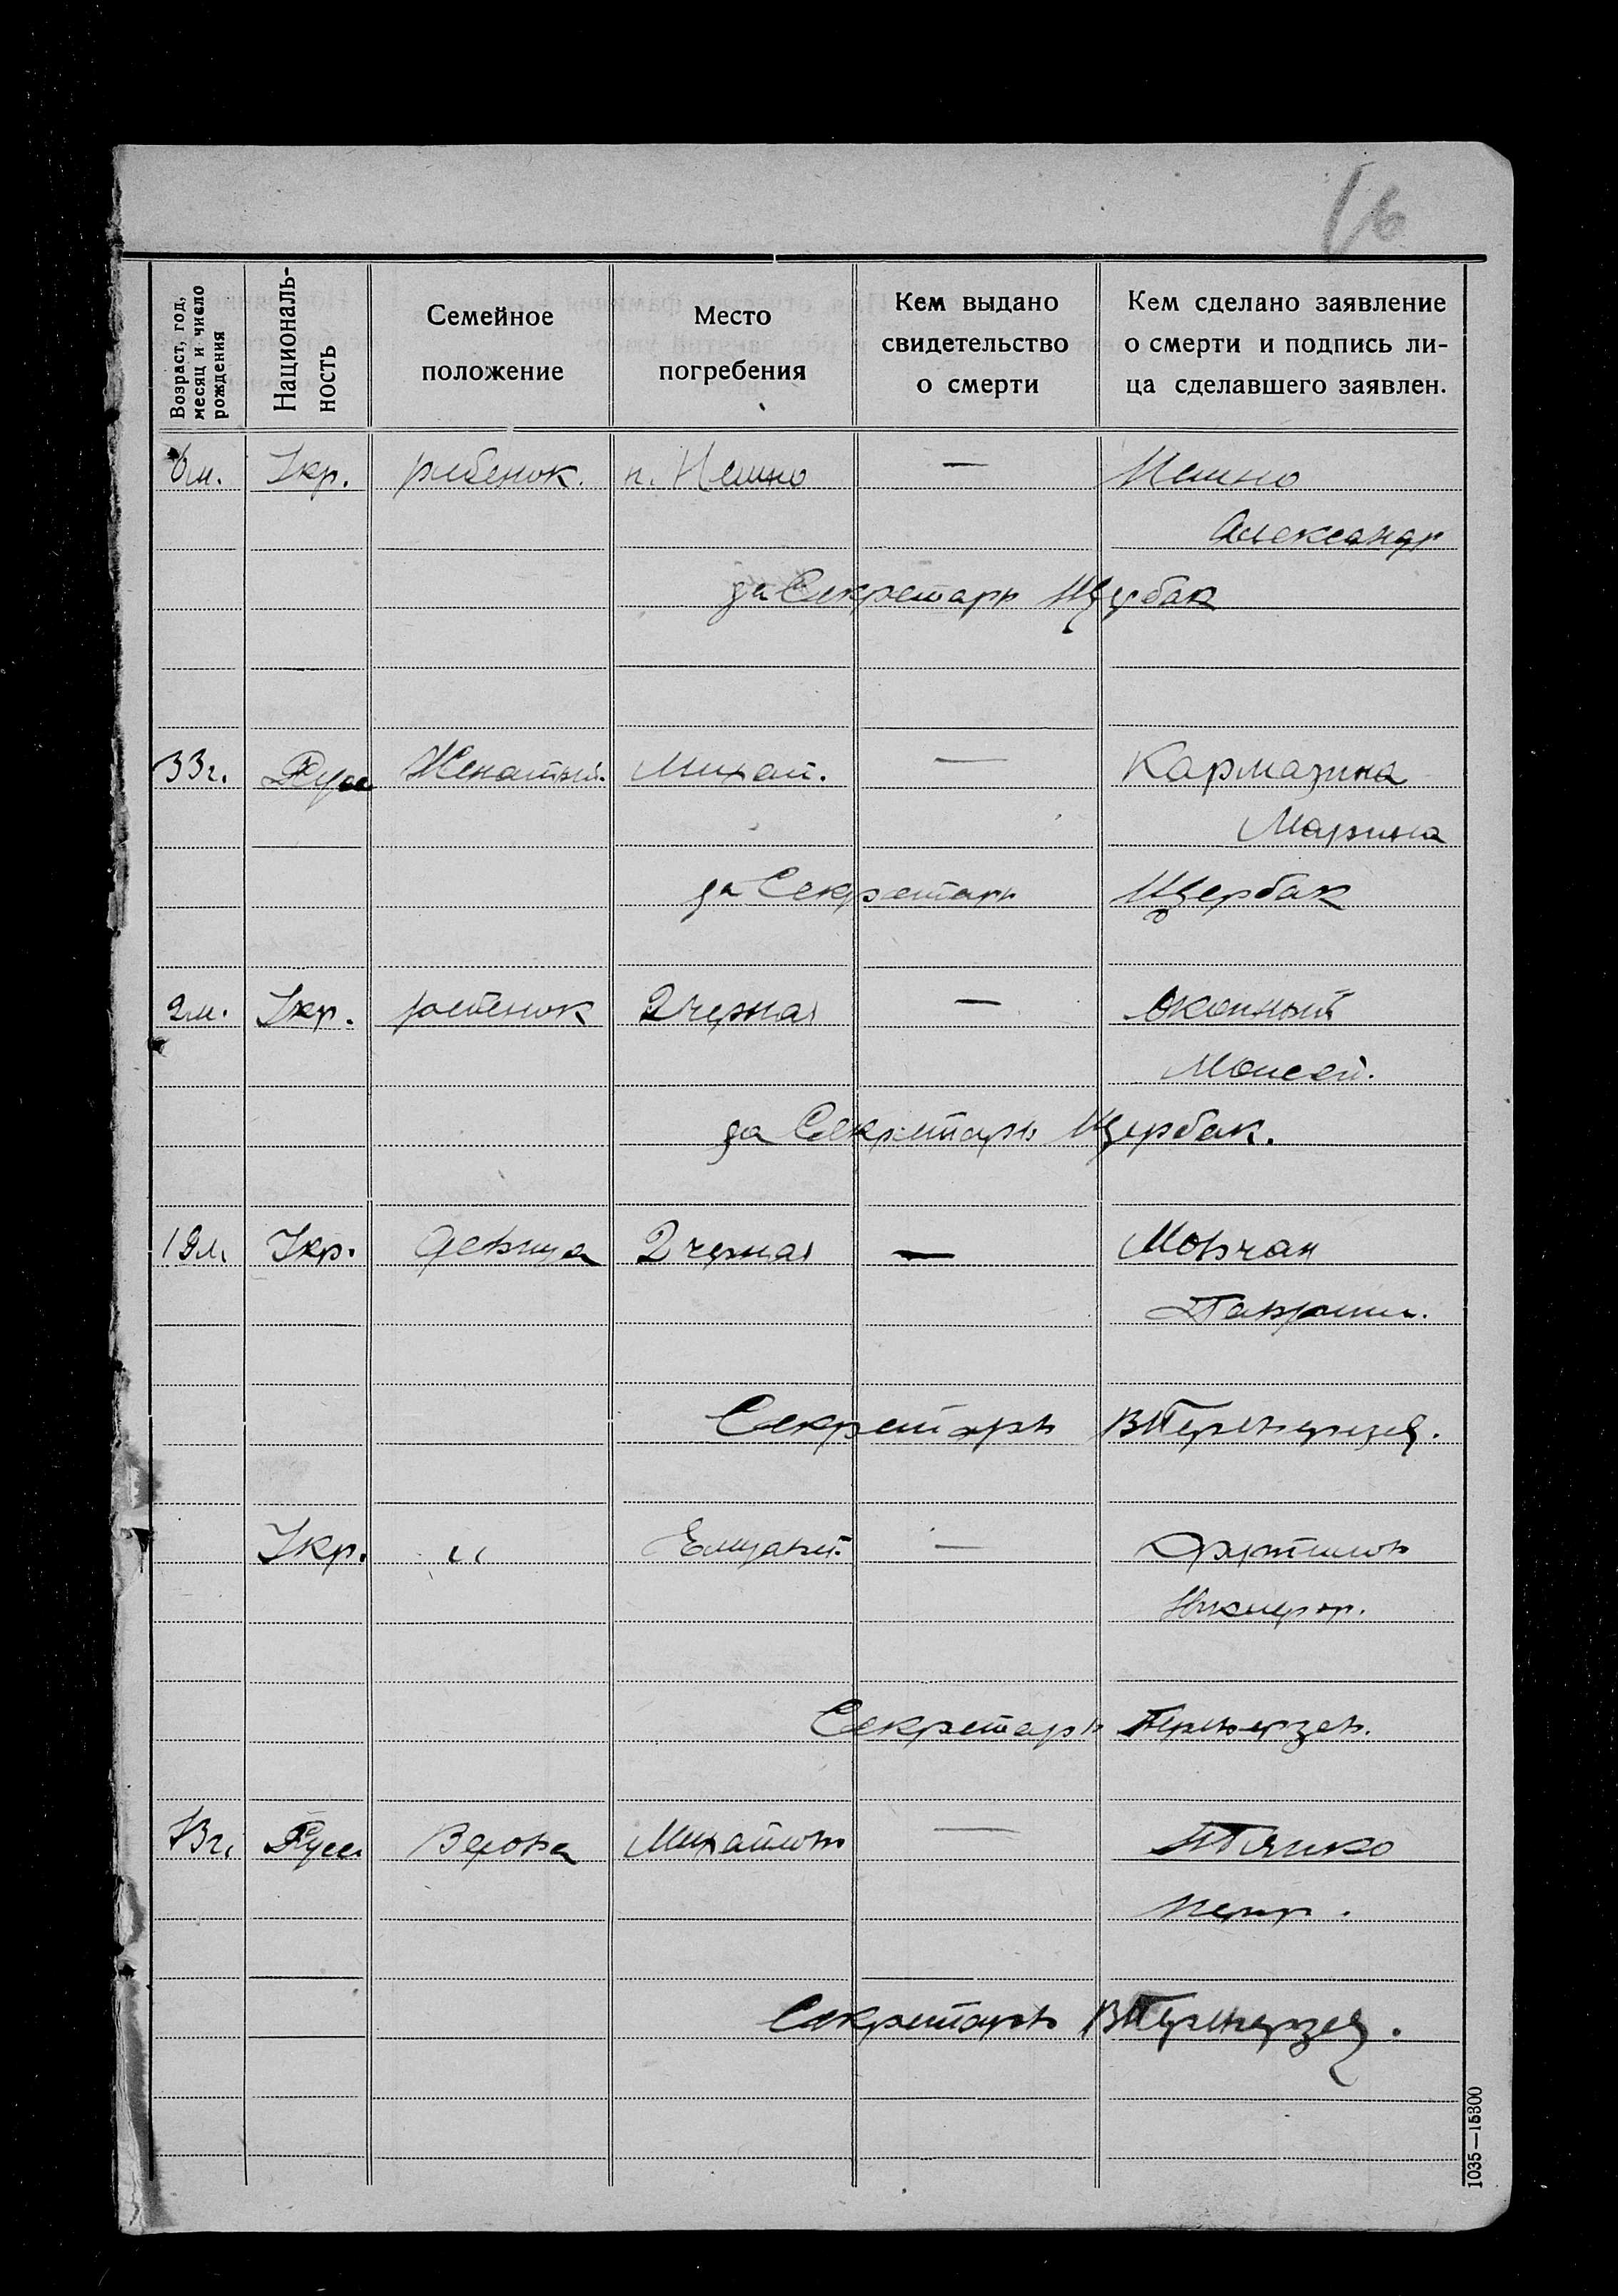 16
Возраст, год,
месяц и число
рождения
Националь-
ность
Семейное
положение
Место
погребения
Кем выдано
свидетельство
о смерти
Кем сделано заявление
о смерти и подпись ли-
ца сделавшего заявлен.
6 м. Укр. ребенок. —
Александр
за Секретарь Щербак
33 г. Русс Женатый. Михай. — Кармазина
Марина
за Секретарь Щербак
2 м. Укр. ребенок 2 черная —
Моисей.
за Секретарь Щербак.
Укр. девица 2 черная — Мовчан
Секретарь
Укр. " Елизавет. —
Никифор.
Секретарь
Русс Вдова Михайлов —
Петр.
Секретарь
1035—15300